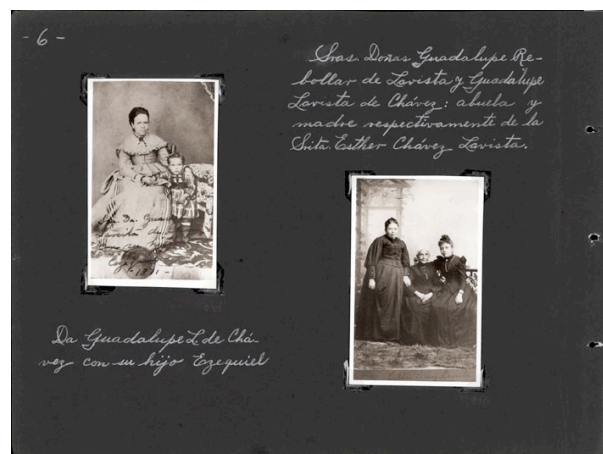 - 6 -
Sras. Doñas Guadalupe Re-
bollar de Lavista y Guadalupe
Lavista de Chávez: abuela y
madre respectivamente de la
Srita. Esther Chávez Lavista.
Da Guadalupe L. de Chá-
vez con su hijo Ezequiel
Da. Guada
Lavista de